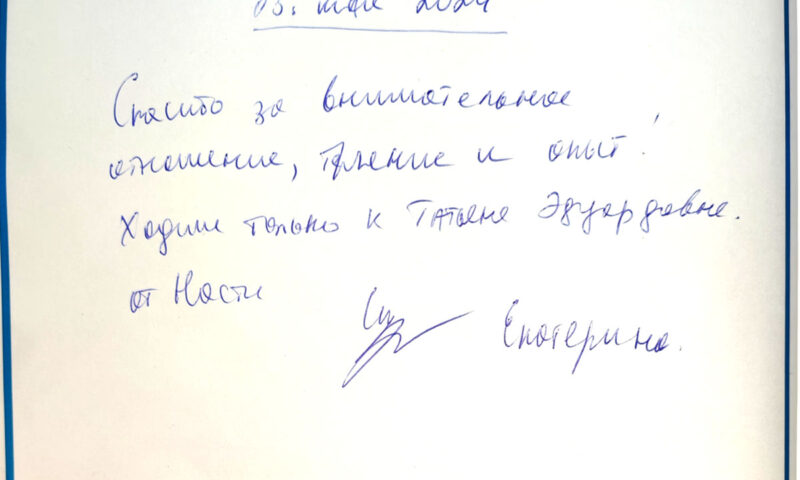 03. мая 2024
Спасибо за внимательное
отношение, терпение и опыт!
Ходим только к Татьяне Эдуардовне.
от Насти
Екатерина.